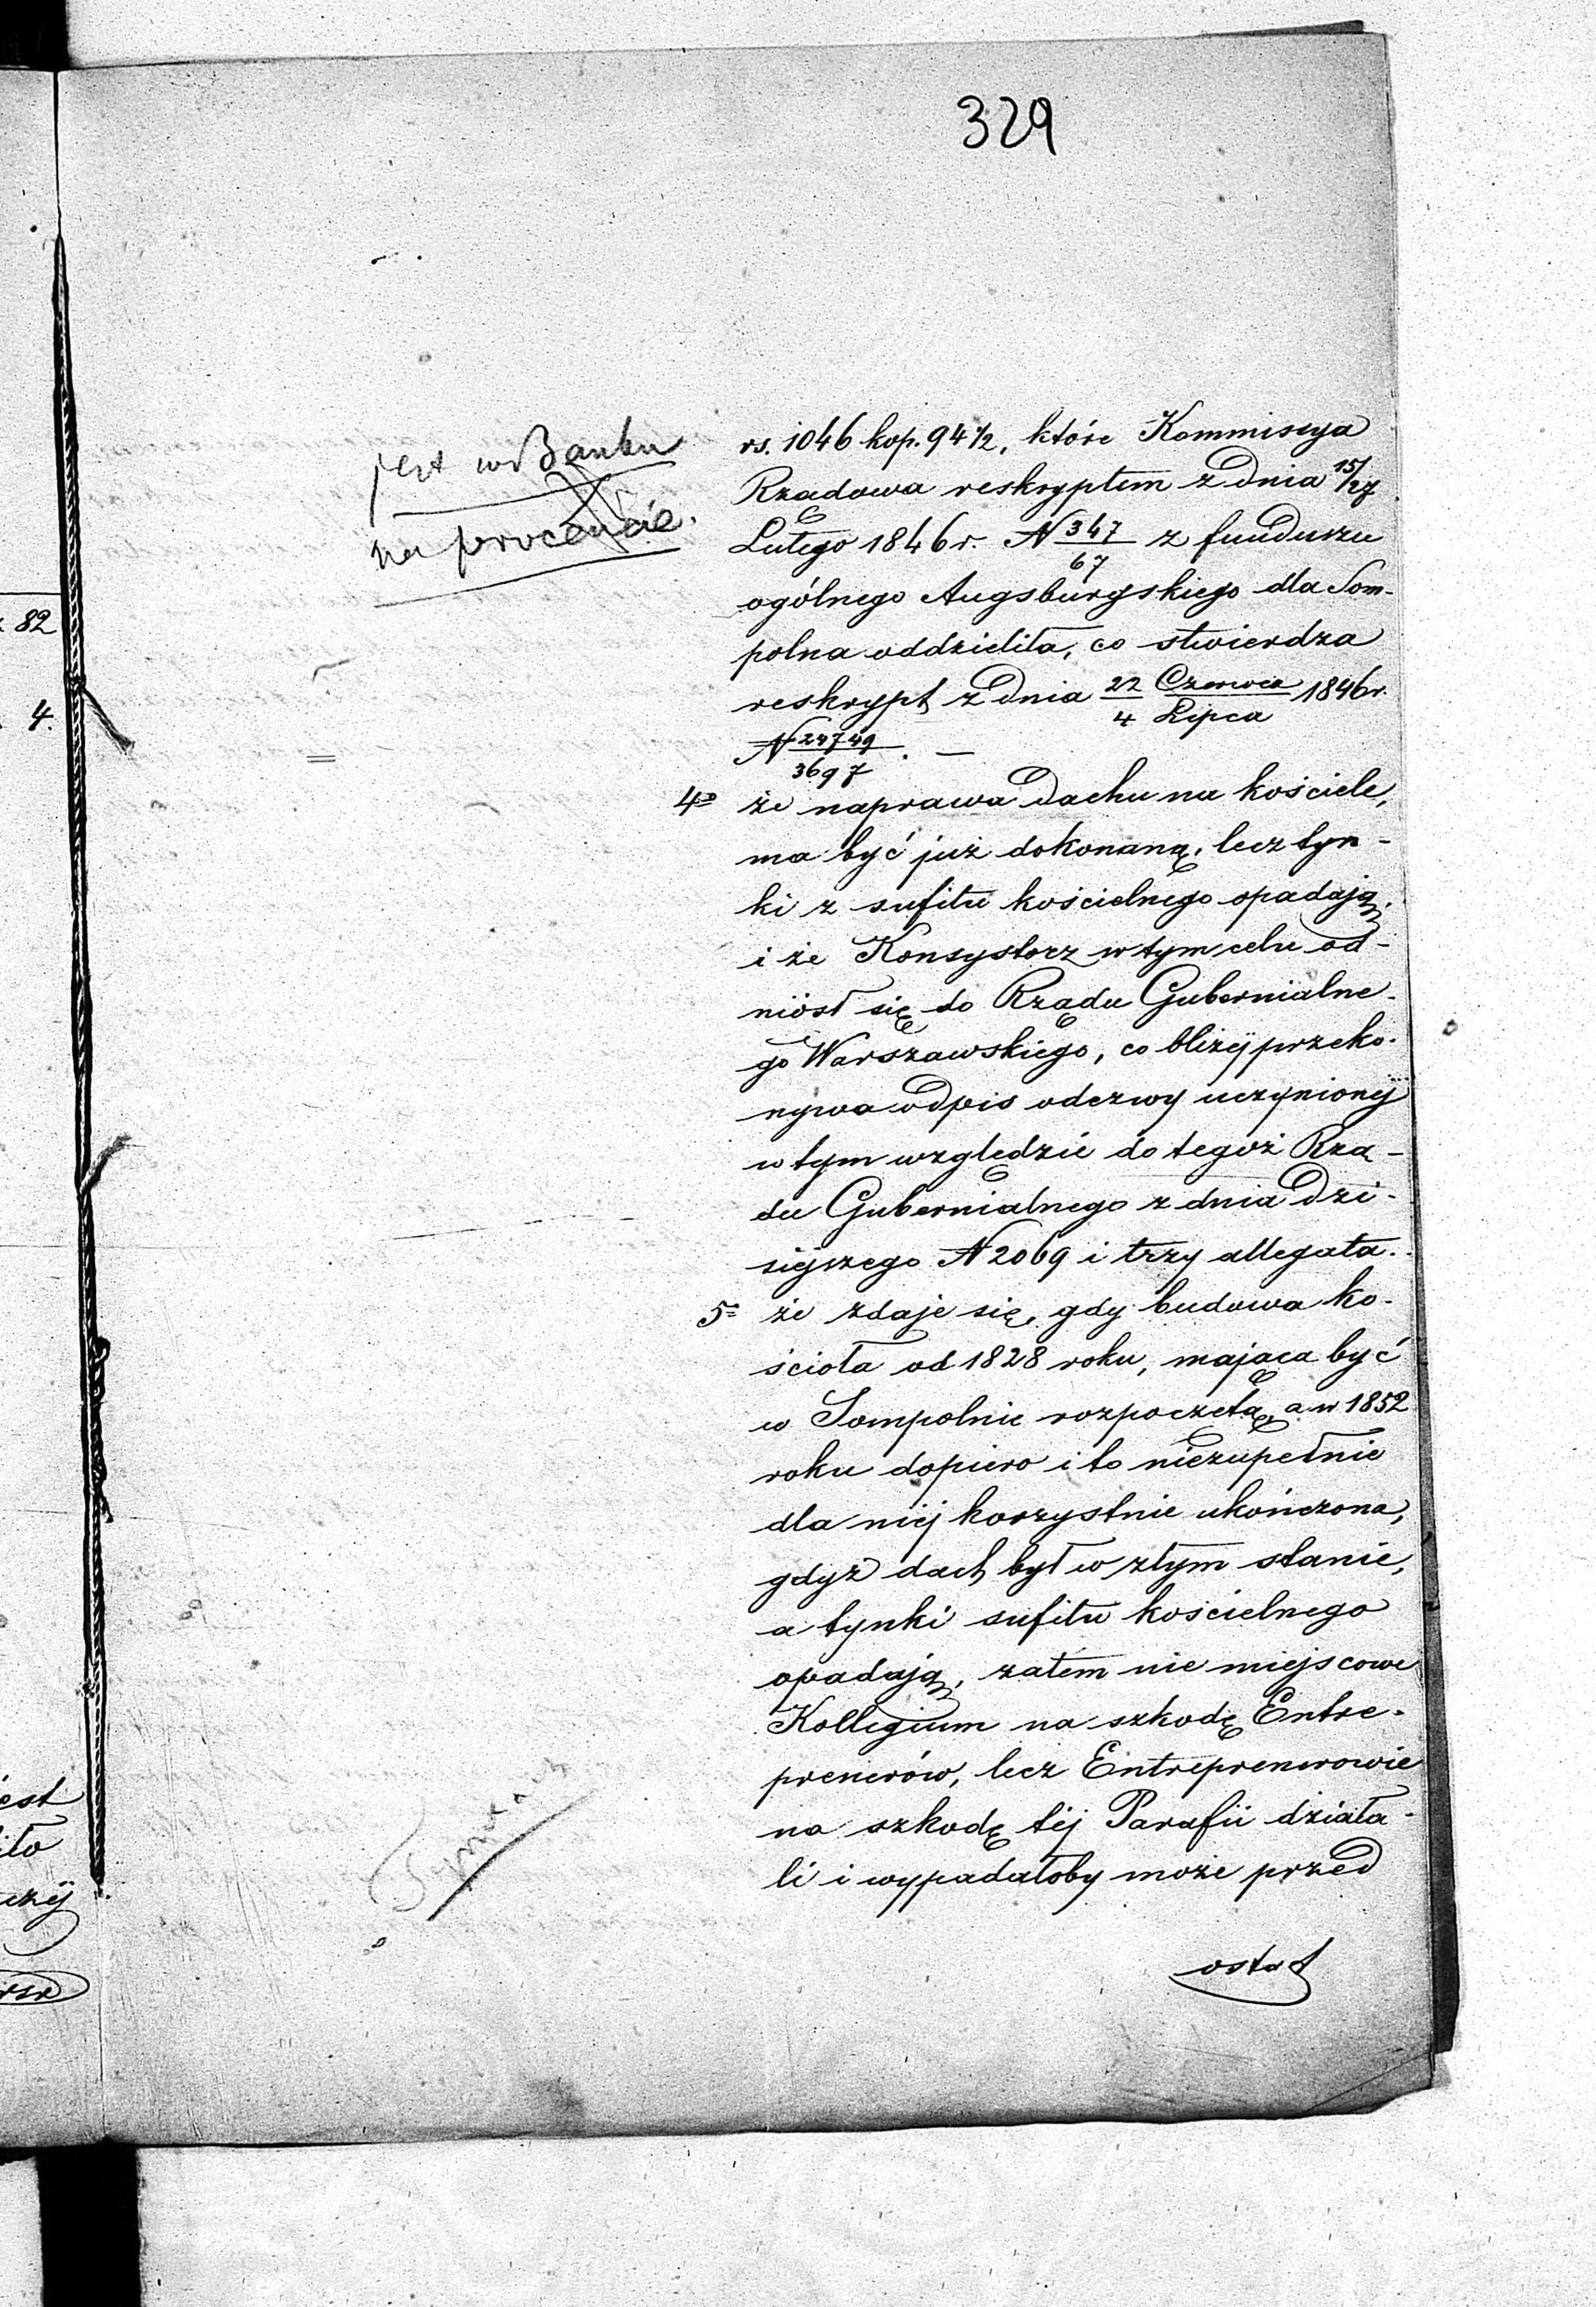 329
jest w Banku
na procencie.
rs. 1046 kop. 94½, które Kommissya
Rządowa reskryptem z dnia 15/27
Lutego 1846 r. N 347/67 z funduszu
ogólnego Augsburgskiego dla Som-
polna oddzieliła, co stwierdza
reskrypt z dnia 22 Czerwca/4 Lipca 1846 r.
N 24749/3697. —
4o że naprawa dachu na kościele,
ma być już dokonaną, lecz tyn-
ki z sufitu kościelnego opadają,
i że Konsystorz w tym celu od-
niósł się do Rządu Gubernialne-
go Warszawskiego, co bliżéj przeko-
nywa odpis odezwy uczynionéj
w tym względzie do tegoż Rzą-
du Gubernialnego z dnia dzi-
siéjszego N 2069 i trzy allegata.
5o że zdaje się, gdy budowa ko-
ścioła od 1828 roku, mająca być
w Sompolnie rozpoczętą, a w 1852
roku dopiero i to niezupełnie
dla niéj korzystnie ukończona,
gdyż dach był w złym stanie,
a tynki sufitu kościelnego
opadają, zatém nie miejscowe
Kollegium na szkodę Entre-
prenerów, lecz Entreprenerowie
na szkodę téj Parafii działa-
li i wypadałoby może przed
ostat
82
4.
est
iło
rsr